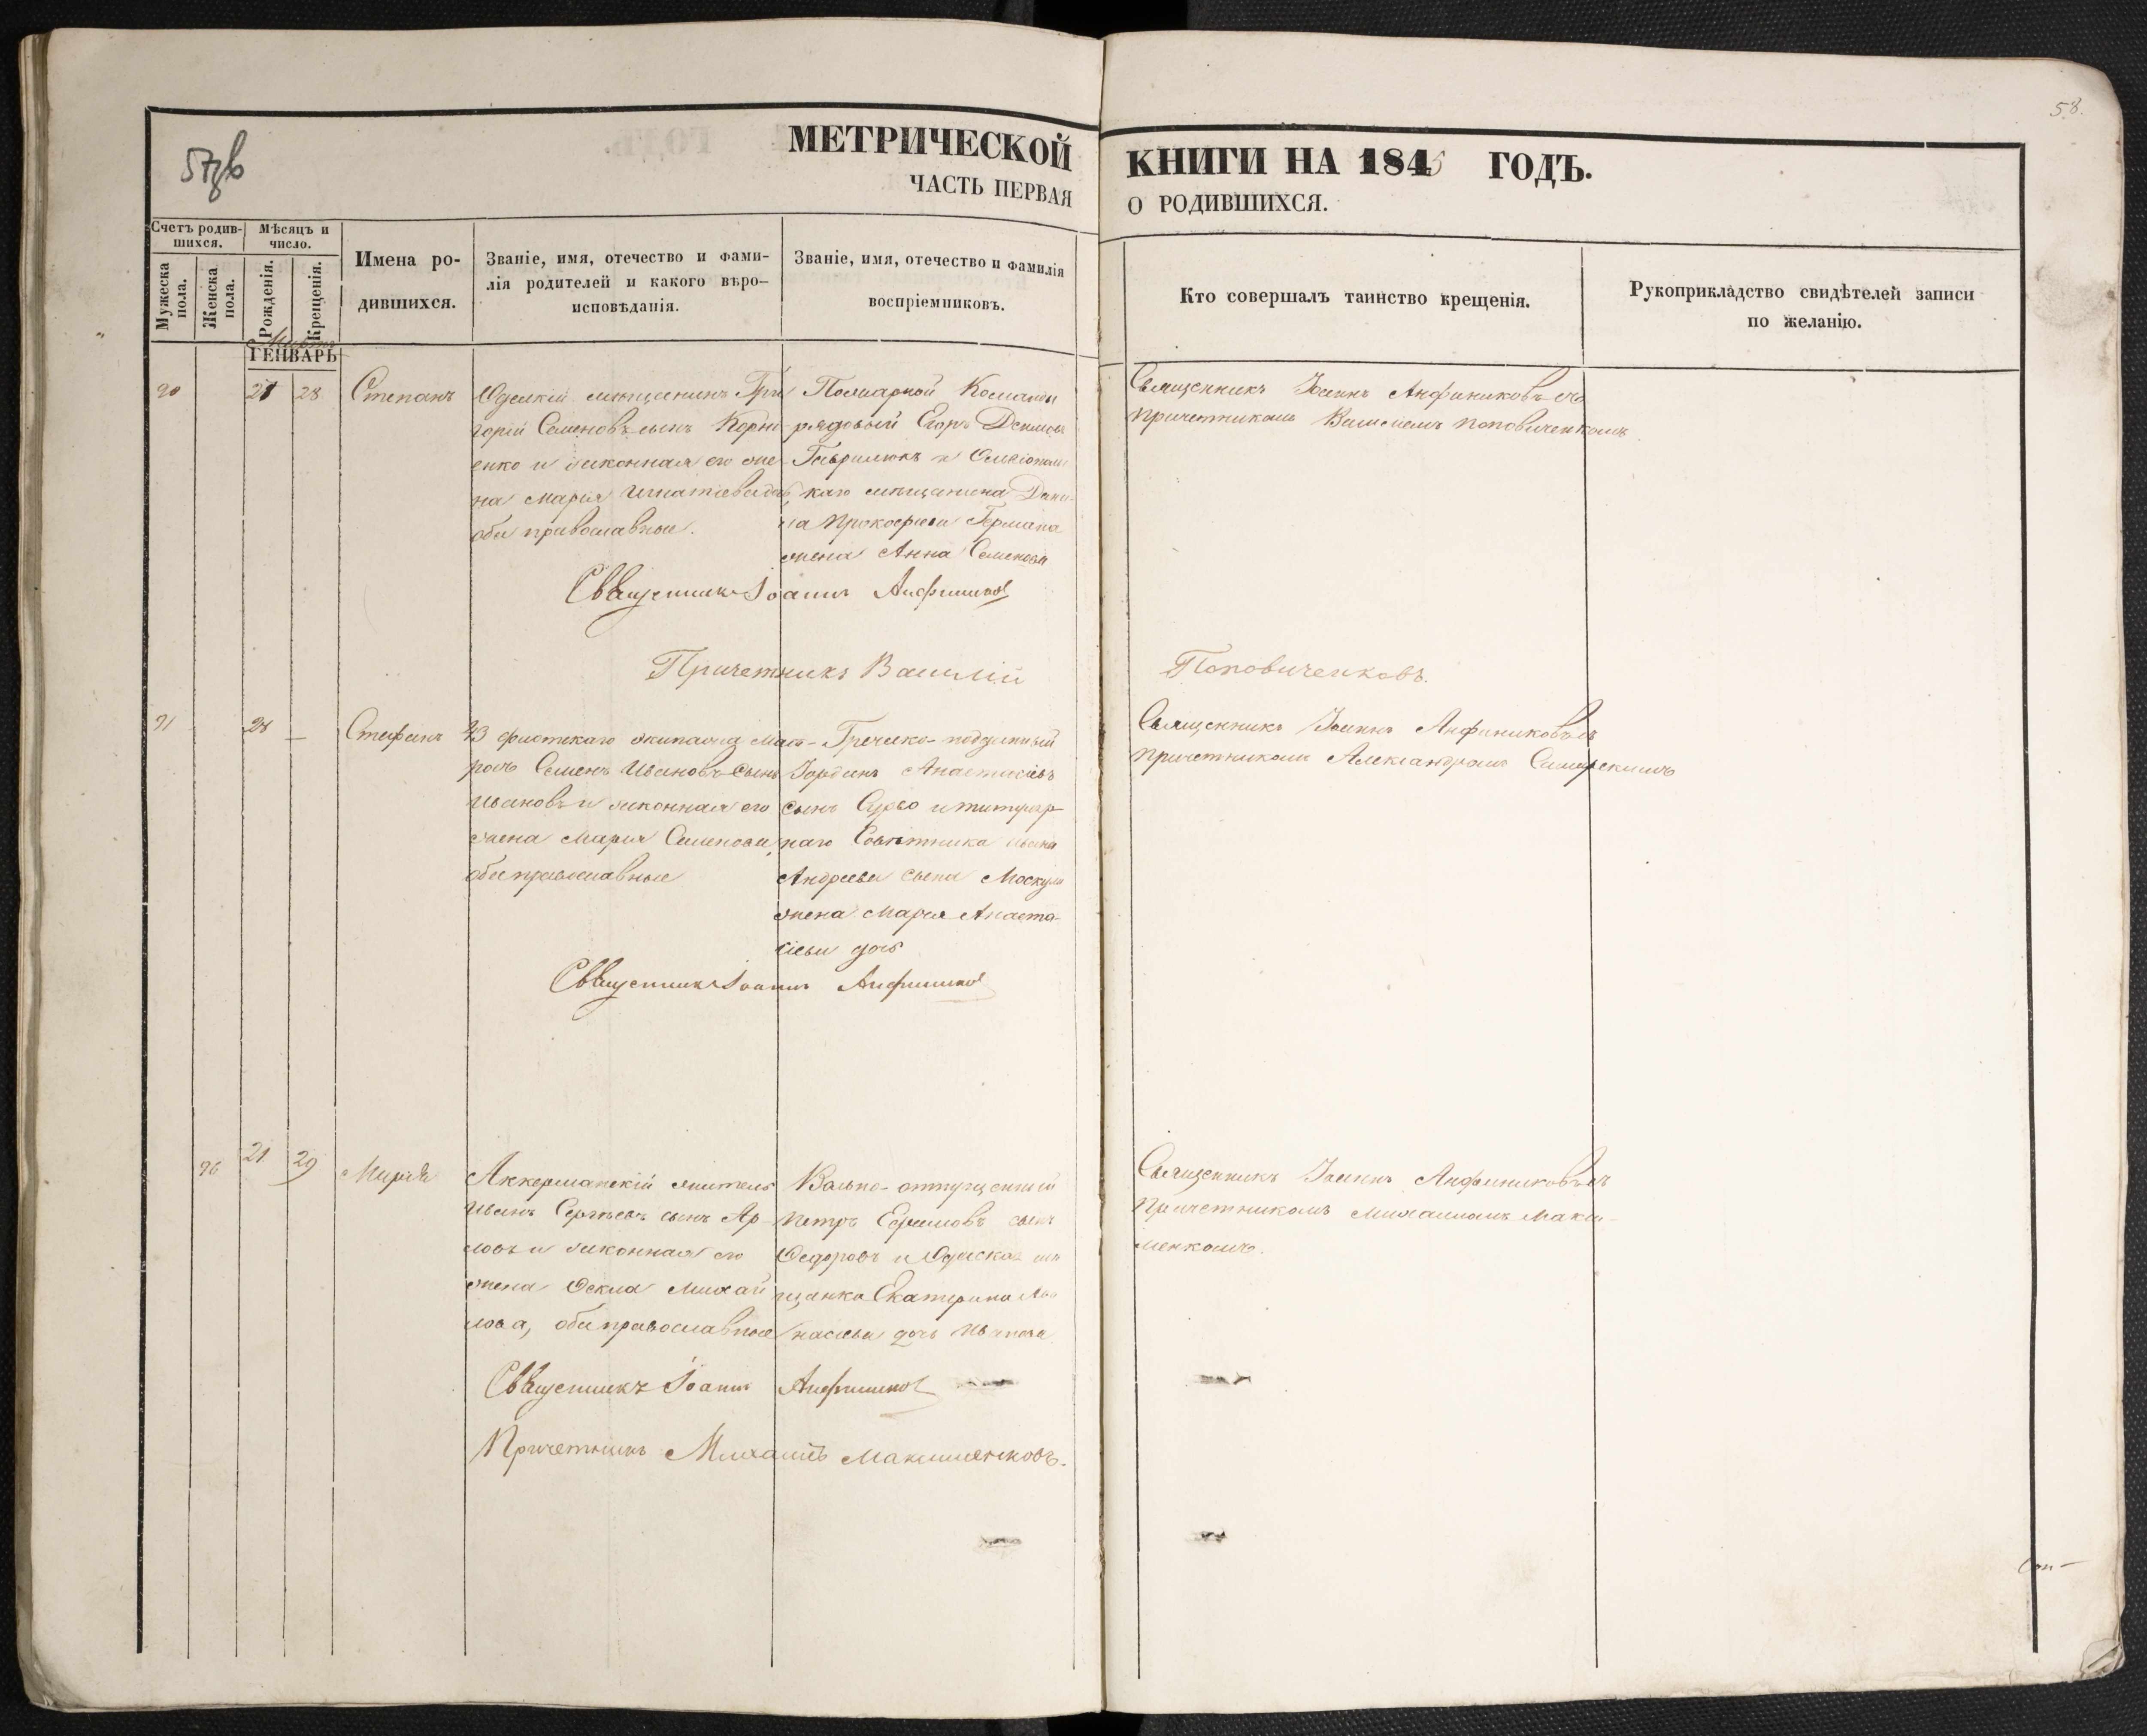 57об
58.
МЕТРИЧЕСКОЙ КНИГИ НА 1845 ГОДЪ.
ЧАСТЬ ПЕРВАЯ О РОДИВШИХСЯ.
Счетъ родившихся.
Мужеска пола.
Женска пола.
Мѣсяцъ и число.
Рожденія.
Крещенія.
Имена родившихся.
Званіе, имя, отечество и фами-
лія родителей и какого вѣро-
исповѣданія.
Званіе, имя, отечество и фамилія
воспріемниковъ.
Кто совершалъ таинство крещенія.
Рукоприкладство свидѣтелей записи
по желанію.
Мартъ
ГЕНВАРЬ
90 21 28 Степанъ
Одескій мѣщанинъ Гри
горій Семеновъ сынъ Корні
енко и законная его же
на Марія Игнатіева дочь
оба православные.
Пожарной Команды
рядовый Егоръ Денисовъ
Гаврилюкъ и
каго мѣщанина Дани
ла Прокофіева Германа
жена Анна Семенова
Священникъ Іоаннъ Анфиниковъ съ
причетникомъ Василіемъ Поповиченкомъ
Священникъ Іоаннъ Анфиниковъ
Причетникъ Василій Поповиченковъ.
91 28 — Стефанъ
43 флотскаго экипажа Мат-
розъ Семенъ Ивановъ сынъ
Ивановъ и законная его
жена Марія Семенова
оба православные
Греческо-подданный
Анастасіевъ
сынъ и титуляр
наго Совѣтника Ивана
Андреева сына
жена Марія Анаста-
сіева дочь
Священникъ Іоаннъ Анфиниковъ съ
причетникомъ Александромъ
Священникъ Іоаннъ Анфиниковъ
96 21 29 Марія
Аккерманскій житель
Иванъ Сергѣевъ сынъ Ар-
ловъ и законная его
жена Фекла Михай
лова, оба православные
Вольно-отпущенный
Петръ Ефимовъ сынъ
Федоровъ и Одеская мѣ
щанка Екатерина Афа
насіева дочь Иванова
Священникъ Іоаннъ Анфиниковъ съ
Причетникомъ Михаиломъ Макси-
менкомъ.
Священникъ Іоаннъ Анфиниковъ
Причетникъ Михаилъ Максименковъ.